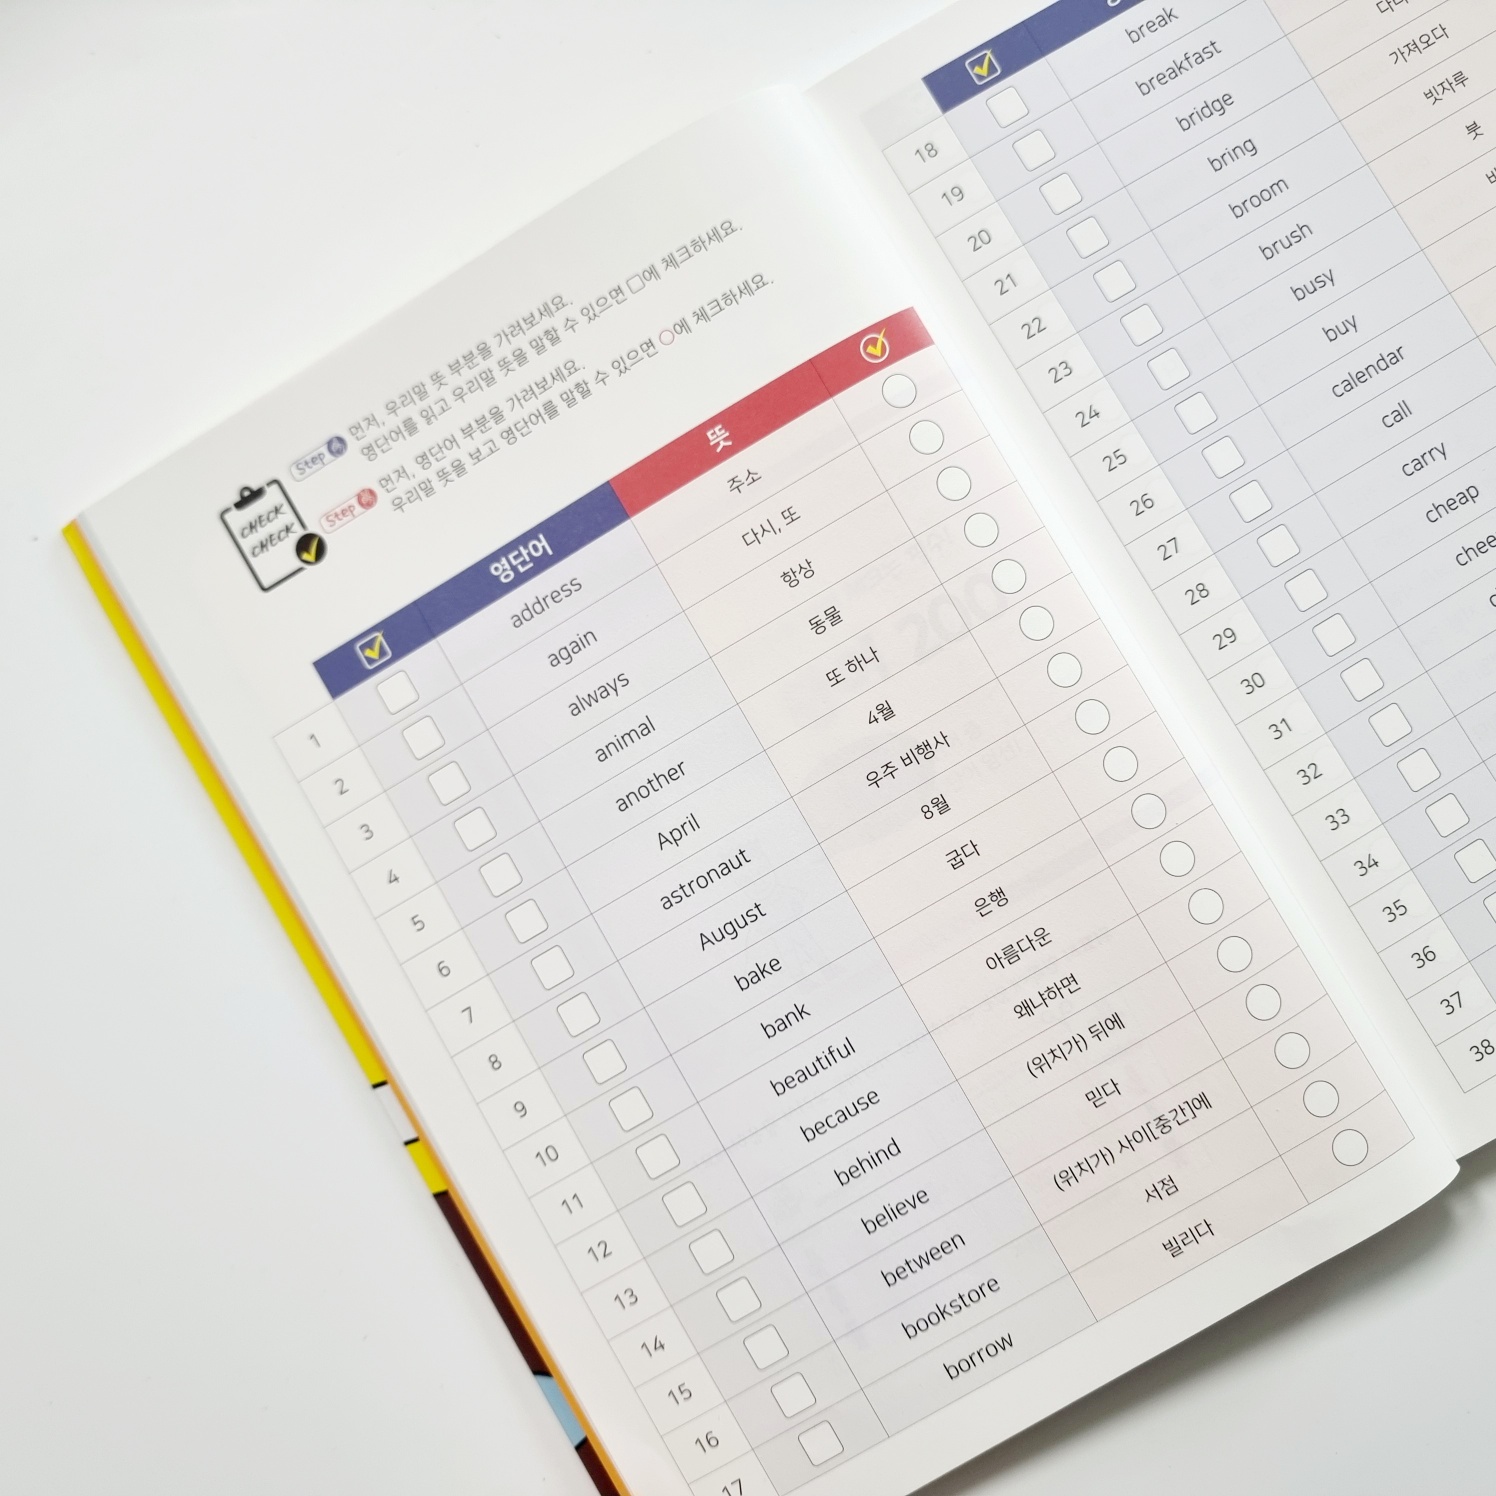 CHECK
CHECK
Step 먼저, 우리말 뜻 부분을 가려보세요.
영단어를 읽고 우리말 뜻을 말할 수 있으면 □에 체크하세요.
Step 먼저, 영단어 부분을 가려보세요.
우리말 뜻을 보고 영단어를 말할 수 있으면 ○에 체크하세요.
영단어 뜻
1 address 주소
2 again 다시, 또
3 always 항상
4 animal 동물
5 another 또 하나
6 April 4월
7 astronaut 우주 비행사
8 August 8월
9 bake 굽다
10 bank 은행
11 beautiful 아름다운
12 because 왜냐하면
13 behind (위치가) 뒤에
14 believe 믿다
15 between (위치가) 사이[중간]에
16 bookstore 서점
17 borrow 빌리다
18 break
19 breakfast
20 bridge 다리
21 bring 가져오다
22 broom 빗자루
23 brush 붓
24 busy
25 buy
26 calendar
27 call
28 carry
29 cheap
30
31
32
33
34
35
36
37
38